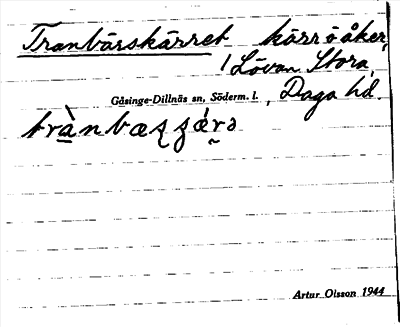 Tranbärskärret kärr o åker,
/ Lövan Stora,
Gåsinge-Dillnäs sn, Söderm. l. , Daga hd.
Artur Olsson 1944